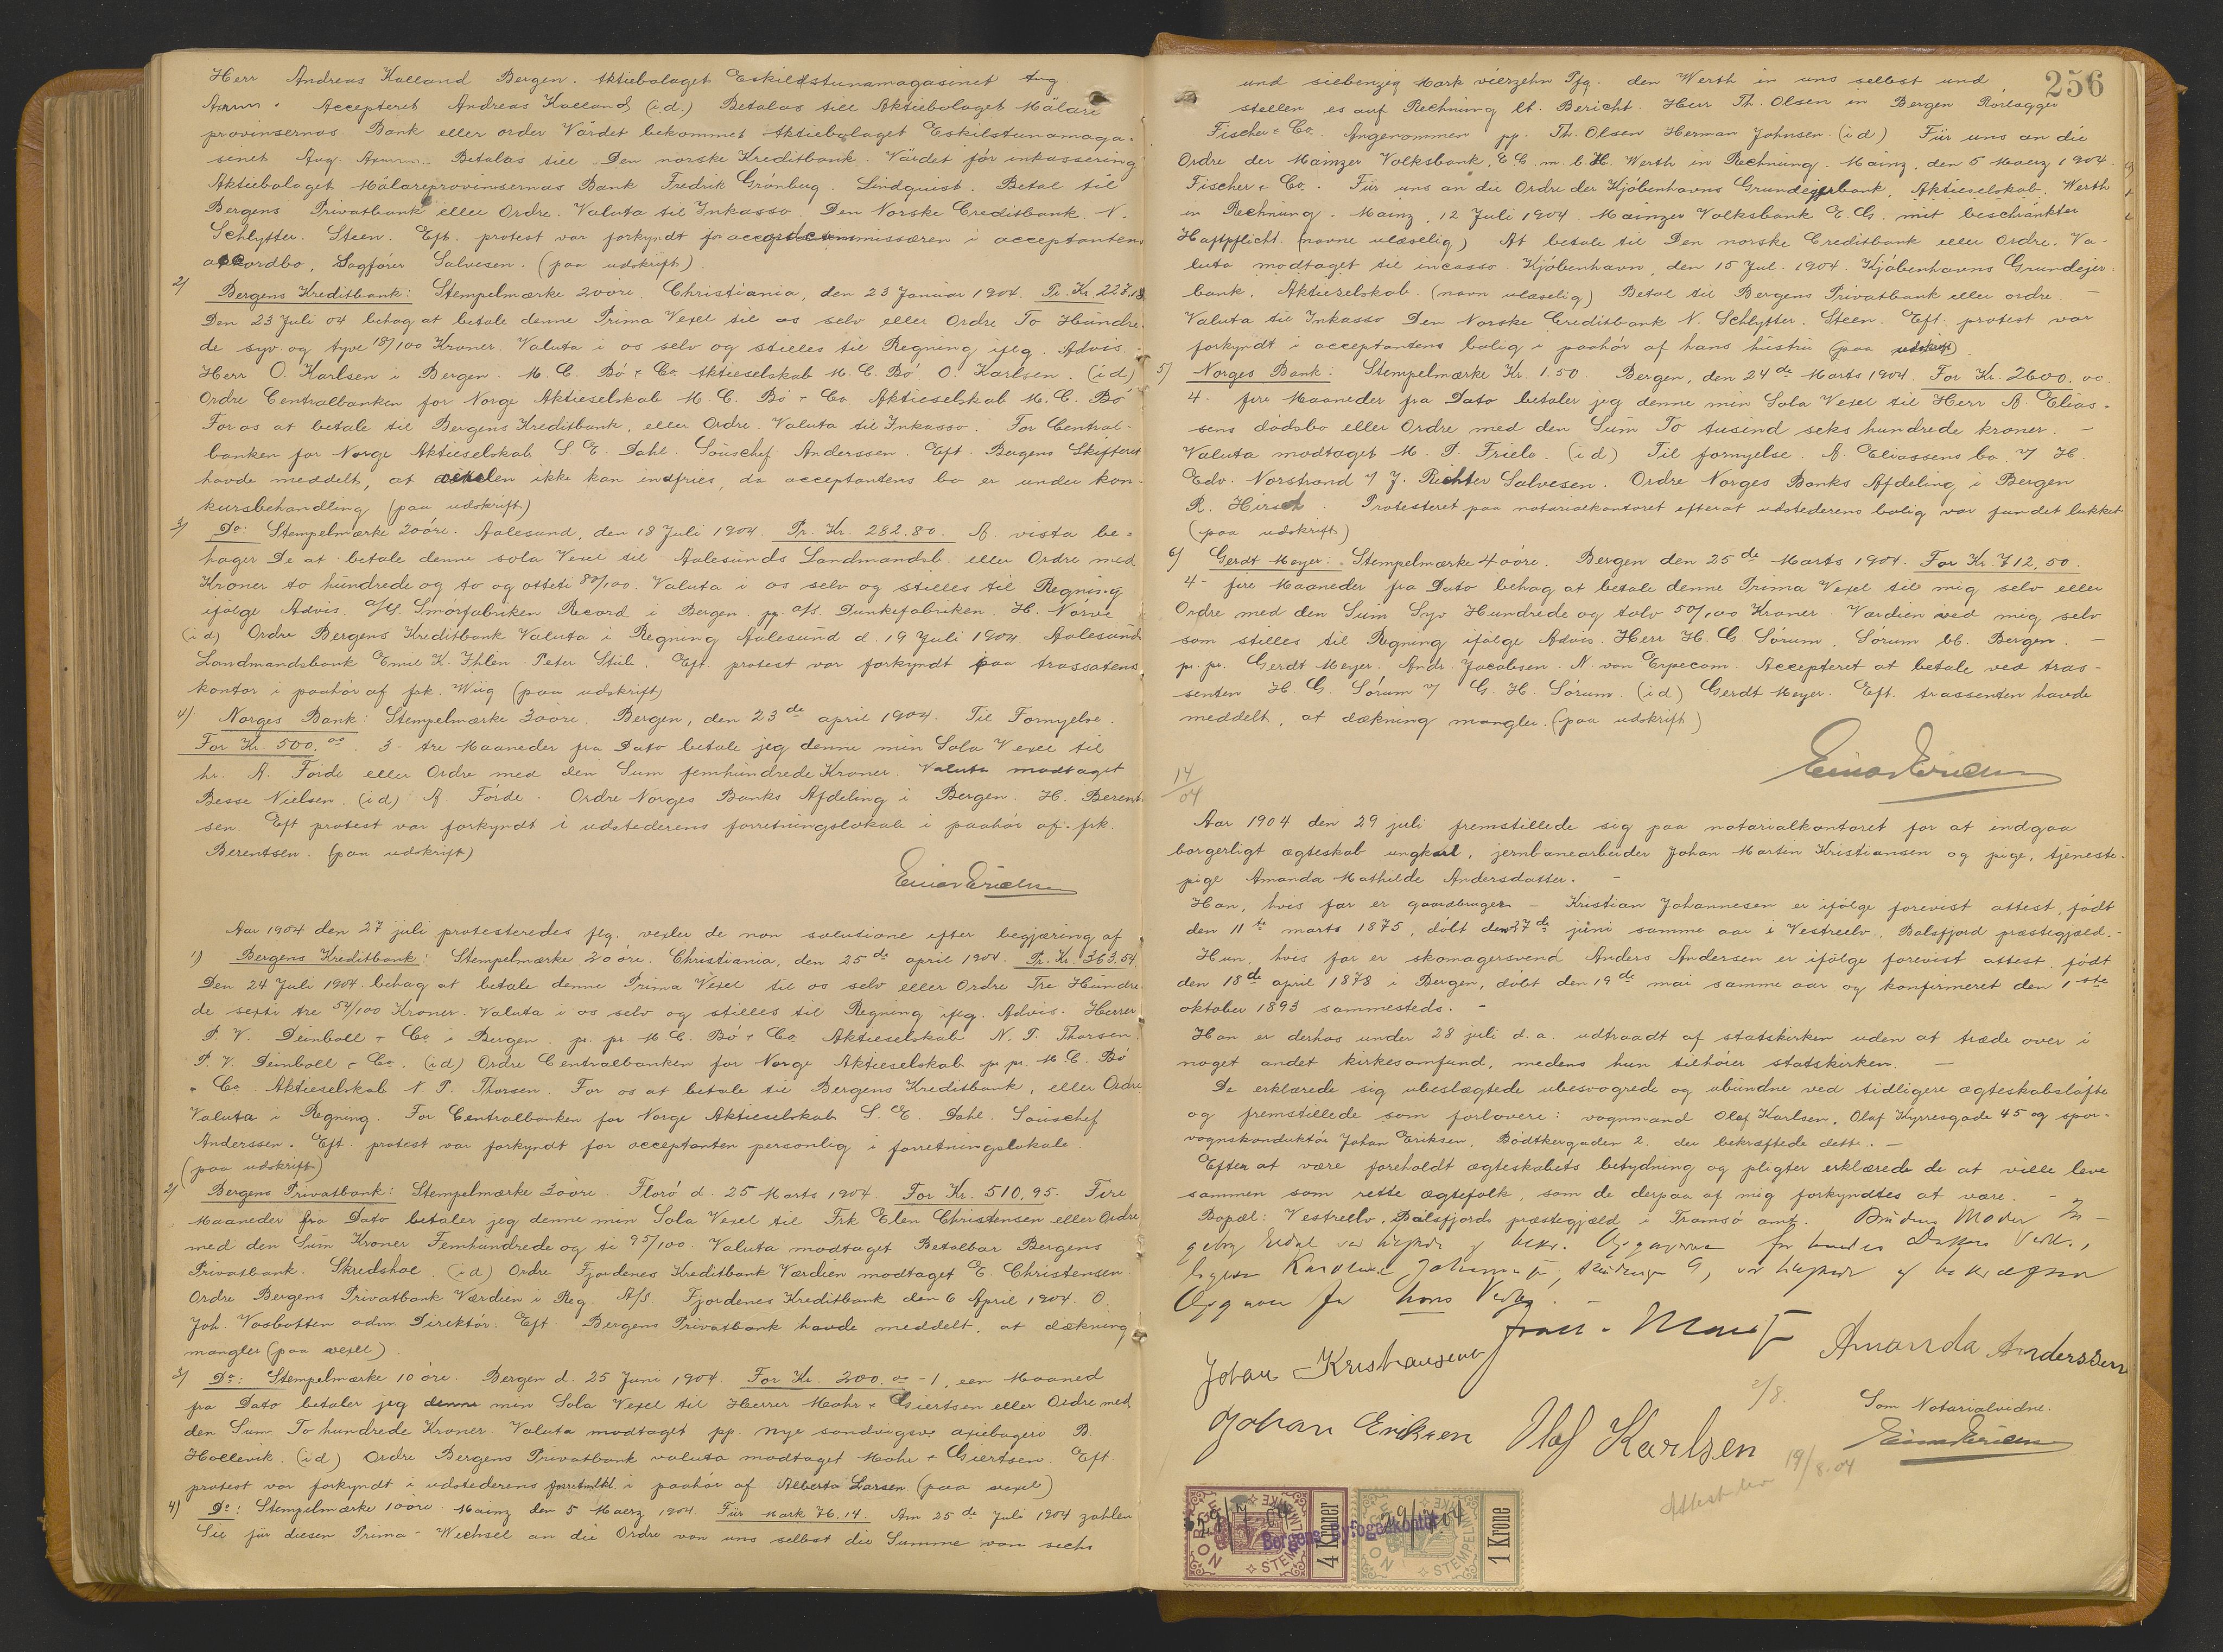 Herr Andreas Kalland Bergen. Aktiebolaget Eskilstunamagasinet Aug.
Axmm. Accepteret Andreas Kalland (i.d.) Betalas till Aktiebolaget Mälare
provinsernas Bank eller order Värdet bekommet Aktiebolaget Eskilstunamaga-
sinet Aug. Axmm. Betalas till Den norske Kreditbank. Värdet för inkassering
Aktiebolaget Mälareprovinsernas Bank Fredrik Grönberg. Lindquist. Betal til
Bergens Privatbank eller Ordre. Valuta til Inkasso. Den Norske Creditbank. N.
Schlytter. Steen. Eft. protest var forkyndt for accordcommissæren i acceptantens
akkordbo, Sagfører Salvesen. (paa udskrift)
2) Bergens Kreditbank: Stempelmærke 20 öre. Christiania, den 23 Januar 1904. Pr. Kr. 227,18
Den 23 Juli 04 behag at betale denne Prima Vexel til os selv eller Ordre To Hundre
de syv og tyve 18/100 Kroner. Valuta i os selv og stilles til Regning iflg. Advis. -
Herr O. Karlsen i Bergen. M. C. Bö & Co. Aktieselskab M. C. Bö O. Karlsen. (i d)
Ordre Centralbanken for Norge Aktieselskab M. C. Bö & Co. Aktieselskab M. C. Bö
For os at betale til Bergens Kreditbank, eller Ordre. Valuta til Inkasso. For Central-
banken for Norge Aktieselskab S. E. Dahl. Souschef Anderssen. Eft. Bergens Skifteret
havde meddelt, at vexelen ikke kan indfries, da acceptantens bo er under kon-
kursbehandling (paa udskrift)
3) Do: Stempelmærke 20 öre. Aalesund, den 18 Juli 1904. Pr. Kr. 282.80. A vista be-
hager De at betale denne sola Vexel til Aalesunds Landmandsb. eller Ordre med
Kroner to hundrede og to og otteti 80/100. Valuta i os selv og stilles til Regning
ifølge Advis. A/S. Smörfabriken Record i Bergen. pp. A/S. Dunkefabriken. H. Norve
(i d) Ordre Bergens Kreditbank Valuta i Regning Aalesund d. 19 Juli 1904. Aalesunds
Landmandsbank Emil K. Ihlen. Peter Stub. Eft. protest var forkyndt paa trassatens
kontor i paahör af frk. Wiig (paa udskrift)
4) Norges Bank: Stempelmærke 30 öre. Bergen, den 23de april 1904. Til Fornyelse.
For Kr. 500.00. 3- tre Maaneder fra Dato betale jeg denne min Sola Vexel til
hr. A. Förde eller Ordre med den Sum femhundrede Kroner. Valuta modtaget
Besse Nielsen. (i d) A. Förde. Ordre Norges Banks Afdeling i Bergen. H. Berent-
sen. Eft protest var forkyndt i udstederens forretningslokale i paahör af frk.
Berentsen. (paa udskrift)
Einar Ericksen
Aar 1904 den 27 juli protesteredes flg. vexler de non solutione efter begjæring af
1) Bergens Kreditbank: Stempelmærke 20 öre. Christiania, den 25de april 1904. Pr. Kr. 363.54.
Den 24 Juli 1904 behag at betale denne Prima Vexel til os selv eller Ordre Tre Hundre
de sexti tre 54/100 Kroner. Valuta i os selv og stilles til Regning iflg. Advis. Herrer
P. V. Deinboll & Co. i Bergen. pr. pr. M C. Bö & Co. Aktieselskab N. T. Thorsen.
P. V. Deinboll & Co. (i d) Ordre Centralbanken for Norge Aktieselskab pr pr. M. C. Bö
& Co. Aktieselskab N. T. Thorsen. For os at betale til Bergens Kreditbank, eller Ordre
Valuta i Regning. For Centralbanken for Norge Aktieselskab S. E. Dahl. Souschef
Anderssen. Eft. protest var forkyndt for acceptanten personlig i forretningslokale.
(paa udskrift)
2) Bergens Privatbank: Stempelmærke 30 öre. Florö d. 25 Marts 1904. For Kr. 510,95. Fire
Maaneder fra Dato betaler jeg denne min Sola Vexel til Frk Elen Christensen eller Ordre
med den Sum Kroner Femhundrede og ti 95/100. Valuta modtaget Betalbar Bergens
Privatbank. Skredshol. (i d) Ordre Fjordenes Kreditbank Værdien modtaget E. Christensen
Ordre Bergens Privatbank Værdien i Reg. A/S. Fjordenes Kreditbank den 6 April 1904. O.
Joh. Vasbotten adm. Direktör. Eft. Bergens Privatbank havde meddelt, at dækning
mangler (paa vexel).
3) Do: Stempelmærke 10 öre. Bergen d. 25 Juni 1904. For Kr. 200.00 - 1, een Maaned
fra Dato betaler jeg denne min Sola Vexel til Herrer Mohr & Giertsen eller Ordre med
den Sum To hundrede Kroner. Valuta modtaget pp. nye sandvigsve axiebageri B.
Hollevik. (i d) Ordre Bergens Privatbank valuta modtaget Mohr & Giertsen. Eft.
protest var forkyndt i udstederens forretn.lkl. i paahör af Alberta Larsen. (paa vexel)
4) Do: Stempelmærke 10 öre. Mainz den 5 Maerz 1904. Für Mark 76.14. Am 25de Juli 1904 zahlen
Sie für diesen Prima-Wechsel an die Ordre von uns selbst die Summe von sechs
256
und siebenzig Mark vierzehn Pfg. den Werth in uns selbst und
stellen es auf Rechnung lt. Bericht. Herr Th. Olsen in Bergen
Fischer & Co. Angenommen pp. Th. Olsen Herman Johnsen. (i d) Für uns an die
Ordre der Mainzer Volksbank, E. G. m. b. H. Werth in Rechnung. Mainz, den 5 Maerz 1904.
Fischer & Co. Für uns an die Ordre der Kjöbenhavns Grundejerbank, Aktieselskab. Werth
in Rechnung. Mainz, 12 Juli 1904. Mainzer Volksbank E. G. mit beschränkter
Haftpflicht. (navne ulæselig) At betale til Den norske Creditbank eller Ordre. Va-
luta modtaget til incasso. Kjöbenhavn, den 15 Jul. 1904. Kjöbenhavns Grundejer-
bank, Aktieselskab. (navn ulæselig) Betal til Bergens Privatbank eller ordre. -
Valuta til Inkasso Den Norske Creditbank N. Schlytter. Steen. Eft. protest var
forkyndt i acceptantens bolig i paahör af hans hustru (paa udskrift).
5) Norges Bank: Stempelmærke Kr. 1.50. Bergen, den 24de Marts 1904. For Kr. 2600.00.
4- fire Maaneder fra Dato betaler jeg denne min Sola Vexel til Herr A. Elias-
sens dödsbo eller Ordre med den Sum To tusind seks hundrede kroner. -
Valuta modtaget M. P. Friele. (i d) Til fornyelse. A. Eliassens bo. v/ H.
Edv. Norstrand v/ J. Richter Salvesen. Ordre Norges Banks Afdeling i Bergen
R. Hirsch. Protesteret paa notarialkontoret efterat udstederens bolig var fundet lukket
(paa udskrift)
6) Gerdt Meyer: Stempelmærke 40 öre. Bergen den 25de Marts 1904. For Kr. 712,50.
4- fire Maaneder fra Dato behag at betale denne Prima Vexel til mig selv eller
Ordre med den Sum Syv Hundrede og tolv 50/100 Kroner. Værdien ved mig selv
som stilles til Regning ifølge Advis. Herr H. G Sörum. Sörum bb. Bergen. -
pr. pr. Gerdt Meyer. Andr. Jacobsen. N. von Erpecom. Accepteret at betale ved tras-
senten H. G. Sörum v/ G. H. Sörum. (i d) Gerdt Meyer. Eft. trassenten havde
meddelt, at dækning mangler. (paa udskrift)
Einar Ericksen
14/04
Aar 1904 den 29 juli fremstillede sig paa notarialkontoret for at indgaa
borgerligt ægteskab ungkarl, jernbanearbeider Johan Martin Kristiansen og pige, tjeneste-
pige Amanda Mathilde Andersdatter. -
Han, hvis far er gaardbruger - Kristian Johannesen er ifølge forevist attest, født
den 11te marts 1875, döbt den 27de juni samme aar i Vestreelv, Balsfjord præstegjæld. -
Hun, hvis far er skomagersvend Anders Andersen er ifølge forevist attest født
den 18de april 1878 i Bergen, döbt den 19de mai samme aar og konfirmeret den 1ste
oktober 1893 sammesteds. -
Han er derhos under 28 juli d. a. udtraadt af statskirken uden at træde over i
noget andet kirkesamfund, medens hun tilhörer statskirken. -
De erklærede sig ubeslægtede ubesvogrede og ubundne ved tidligere ægteskabslöfte
og fremstillede som forlovere: vognmand Olaf Karlsen, Olaf Kyrresgade 45 og spor-
vognskonduktör Johan Eriksen, Bödtkergaden 2. der bekræftede dette. -
Efter at være foreholdt ægteskabets betydning og pligter erklærede de at ville leve
sammen som rette ægtefolk, som de derpaa af mig forkyndtes at være. -
Bopæl: Vestreelv, Balsfjords præstegjæld i Tromsö amt. Brudens Moder
Opgaver for hans Vedk.
Johan Kristiansen Amanda Anderssen
2/8.
Som Notarialvidne.
Johan Eriksen Olaf Karlsen
Einar Ericksen
Attest lev 19/8.04
NORGE STEMPELMÆRKE 4 Kroner
29/7 04
Bergens Byfogedkontor
29/7 04
NORGE STEMPELMÆRKE 1 Krone